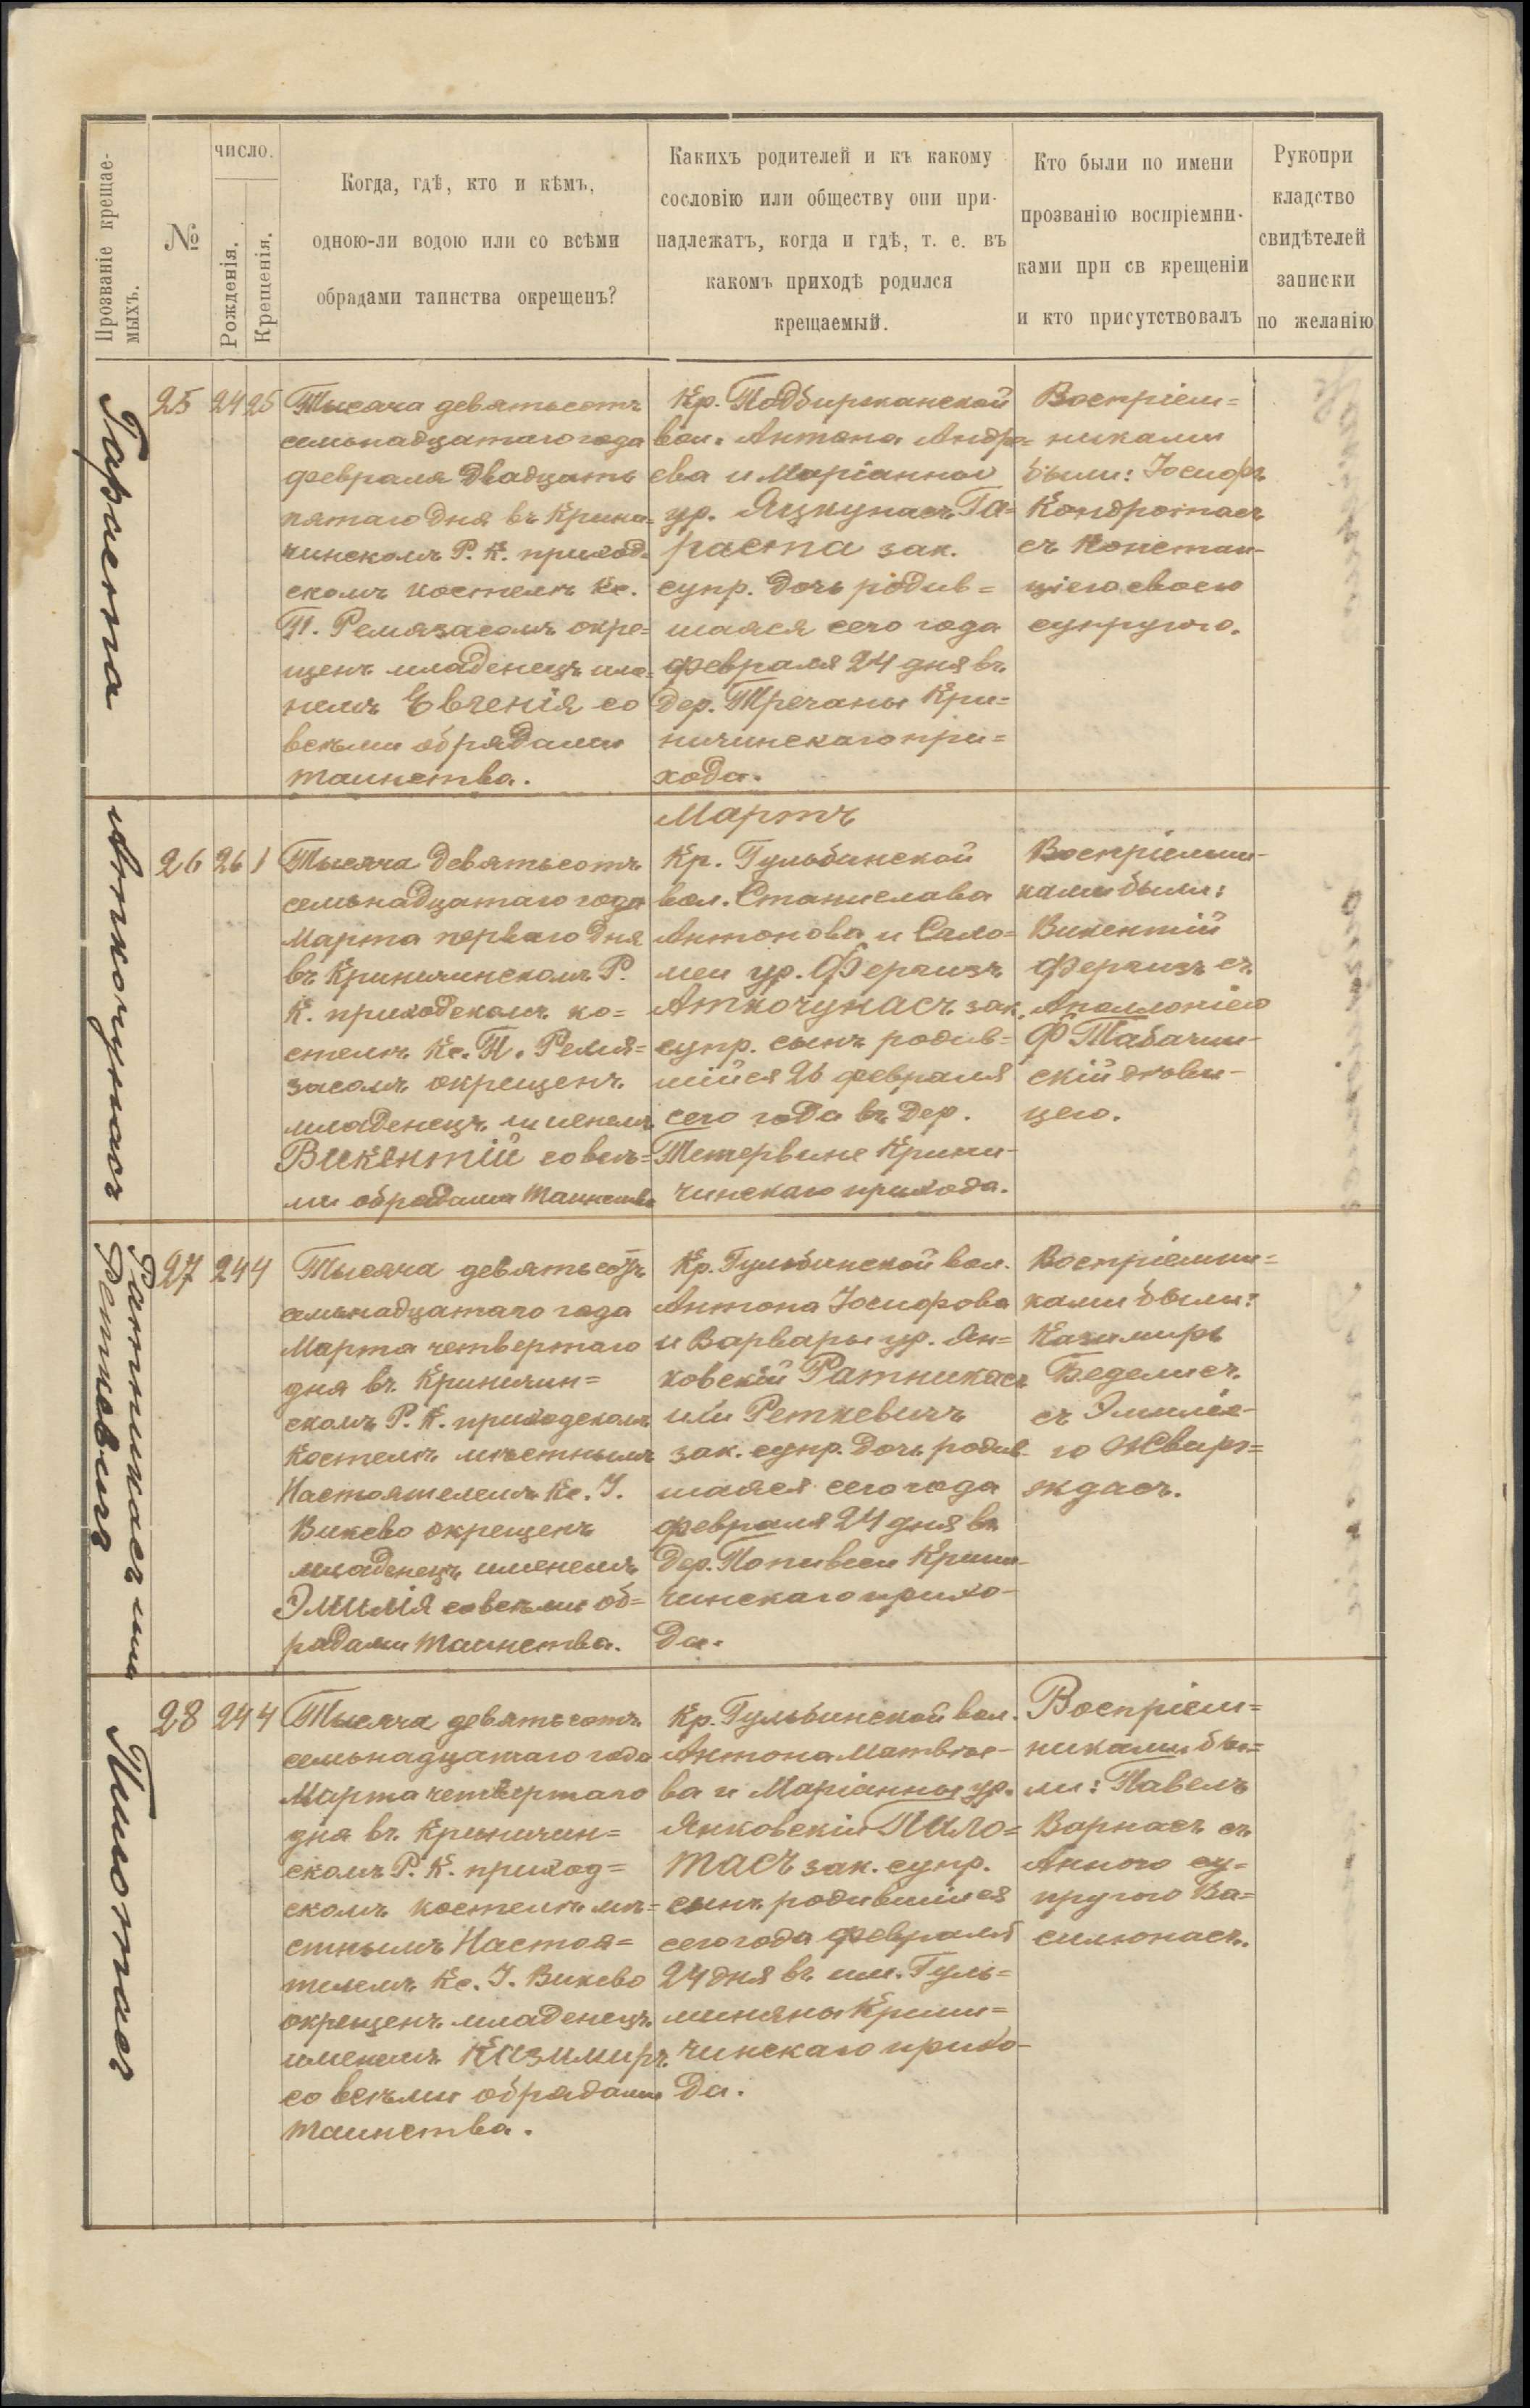 Прозваніе крещае-
мыхъ.
№
число.
Рожденія.
Крещенія.
Когда, гдѣ, кто и кѣмъ,
одною-ли водою или со всѣми
обрадами таинства окрещенъ?
Какихъ родителей и къ какому
сословію или обществу они при-
надлежатъ, когда и гдѣ, т. е. въ
какомъ приходѣ родился
крещаемый.
Кто были по имени
прозванію воспріемни-
ками при св крещеніи
и кто присутствовалъ
Рукопри
кладство
свидѣтелей
записки
по желанію
Гараста
25
24
25
Тысяча девятьсотъ
семьнадцатаго года
февраля двадцать
пятаго дня въ Крини-
чинскомъ Р. К. приход-
скомъ костелѣ Кс.
П. Ремязасомъ окре=
щенъ младенецъ име-
немъ Евгенія со
всѣми обрядами
таинства.
Кр. Подбиржанской
вол. Антона Андре-
ева и Маріанны
ур. Яцкунасъ Га=
раста зак.
супр. дочь родив=
шаяся сего года
февраля 24 дня въ
дер. Тречаны Кри=
ничинскаго при=
хода.
Воспріем=
никами
были: Іосифъ
Кондротасъ
съ Констан-
ціею своею
супругою.
Мартъ
Аткочунасъ
26
26
1
Тысяча девятьсотъ
семьнадцатаго года
Марта перваго дня
въ Криничинскомъ Р.
К. приходскомъ ко=
стелѣ Кс. П. Ремя=
засомъ окрещенъ
младенецъ именемъ
Викентій со всѣ=
ми обрядами таинства
Кр. Гульбинской
вол. Станислава
Антонова и Сало=
меи ур. Ферлизъ
Аткочунасъ зак.
супр. сынъ родив=
шійся 26 февраля
сего года въ дер.
Тетервине Крини-
чинскаго прихода.
Воспріемни-
ками были:
Викентій
Ферлизъ съ
Аполлоніею
Ф Табачин-
скій дѣви-
цею.
Ратникасъ или
Реткевичъ
27
24
4
Тысяча девятьсотъ
семьнадцатаго года
Марта четвертаго
дня въ Криничин=
скомъ Р. К. приходскомъ
костелѣ мѣстнымъ
Настоятелемъ Кс. І.
Виксво окрещенъ
младенецъ именемъ
Эмилія со всѣми об=
радами таинства.
Кр. Гульбинской вол.
Антона Іосифова
и Варвары ур. Ян=
ковскій Ратникасъ
или Реткевичъ
зак. супр. дочь родив-
шаяся сего года
февраля 24 дня въ
дер. Попивеси Крини-
чинскаго прихо-
да.
Воспріемни=
ками были:
Казимиръ
Беделисъ
съ Эмиліе-
ю Жвир=
ждасъ.
Пилотасъ
28
24
4
Тысяча девятьсотъ
семьнадцатаго года
Марта четвертаго
дня въ Криничин=
скомъ Р. К. приход=
скомъ костелѣ мѣ=
стнымъ Настоя=
телемъ Кс. І. Виксво
окрещенъ младенецъ
именемъ Казимиръ
со всѣми обрядами
таинства.
Кр. Гульбинской вол.
Антона Матвѣе-
ва и Маріанны ур.
Янковскій Пило=
тасъ зак. супр.
сынъ родившійся
сего года февраля
24 дня въ им. Гуль=
миняны Крини=
чинскаго прихо-
да.
Воспріем=
никами бы=
ли: Павелъ
Варнасъ съ
Анною су=
пругою Ва=
силюнасъ.